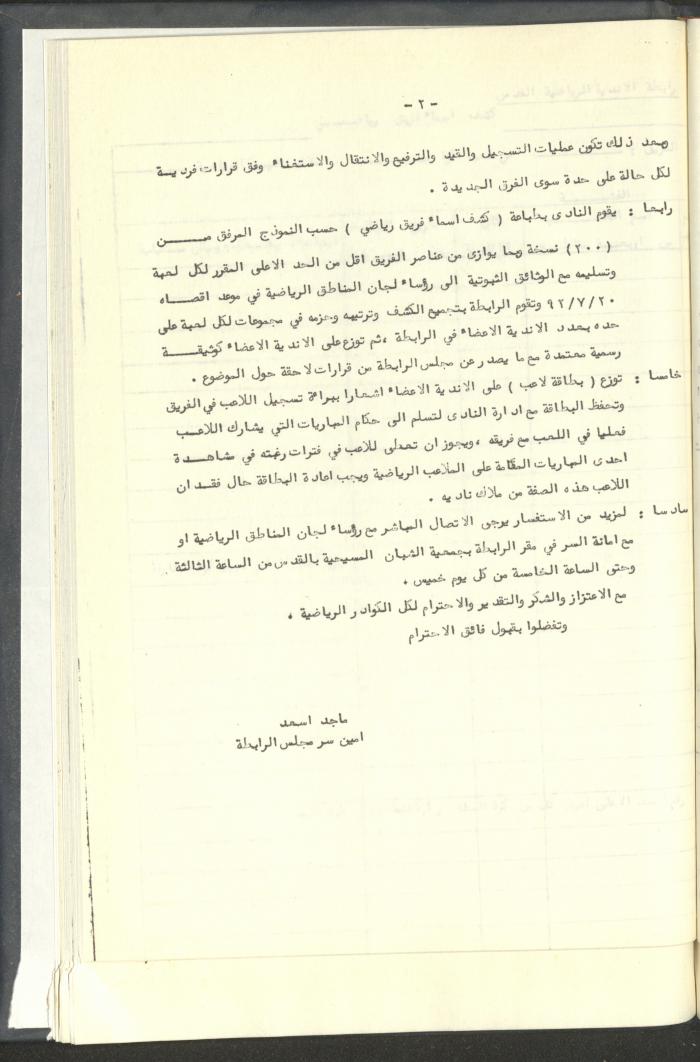 - ٢ -
وبعد ذلك تكون عمليات التسجيل والقيد والترفيع والانتقال والاستغناء وفق قرارات فرديــة
لكل حالة على حدة سوى الفرق الجديدة .
رابعا : يقوم النادى بطباعة ( كشف اسماء فريق رياضي ) حسب النموذج المرفق مــــن
(٢٠٠) نسخة وبما يوازى من عناصر الفريق اقل من الحد الاعلى المقرر لكل لعبة
وتسليمه مع الوثائق الثبوتية الى رؤساء لجان المناطق الرياضية في موعد اقصــاه
٩٢/٧/٢٠ وتقوم الرابطة بتجميع الكشف وترتيبه وحزمه في مجموعات لكل لعبة على
حده بعدد الاندية الاعضاء في الرابطة ،ثم توزع على الاندية الاعضاء كوثيقــــة
رسمية معتمدة مع ما يصدر عن مجلس الرابطة من قرارات لاحقة حول الموضوع .
خامسا : توزع ( بطاقة لاعب ) على الاندية الاعضاء اشعارا ببراءة تسجيل اللاعب في الفريق
وتحفظ البطاقة مع ادارة النادى لتسلم الى حكام المباريات التي يشارك اللاعــب
فعليا في اللعب مع فريقه ،ويجوز ان تعطى للاعب في فترات رغبته في مشاهــدة
احدى المباريات المقامة على الملاعب الرياضية ويجب اعادة البطاقة حال فقــد ان
اللاعب هذه الصفة من ملاك ناديه .
سادسا : لمزيد من الاستفسار يرجى الاتصال المباشر مع رؤساء لجان المناطق الرياضية او
مع امانة السر في مقر الرابطة بجمعية الشبان المسيحية بالقدس من الساعة الثالثة
وحتى الساعة الخامسة من كل يوم خميس .
مع الاعتزاز والشكر والتقدير والاحترام لكل الكوادر الرياضية .
وتفضلوا بقبول فائق الاحترام
ماجد اسعد
امين سر مجلس الرابطة